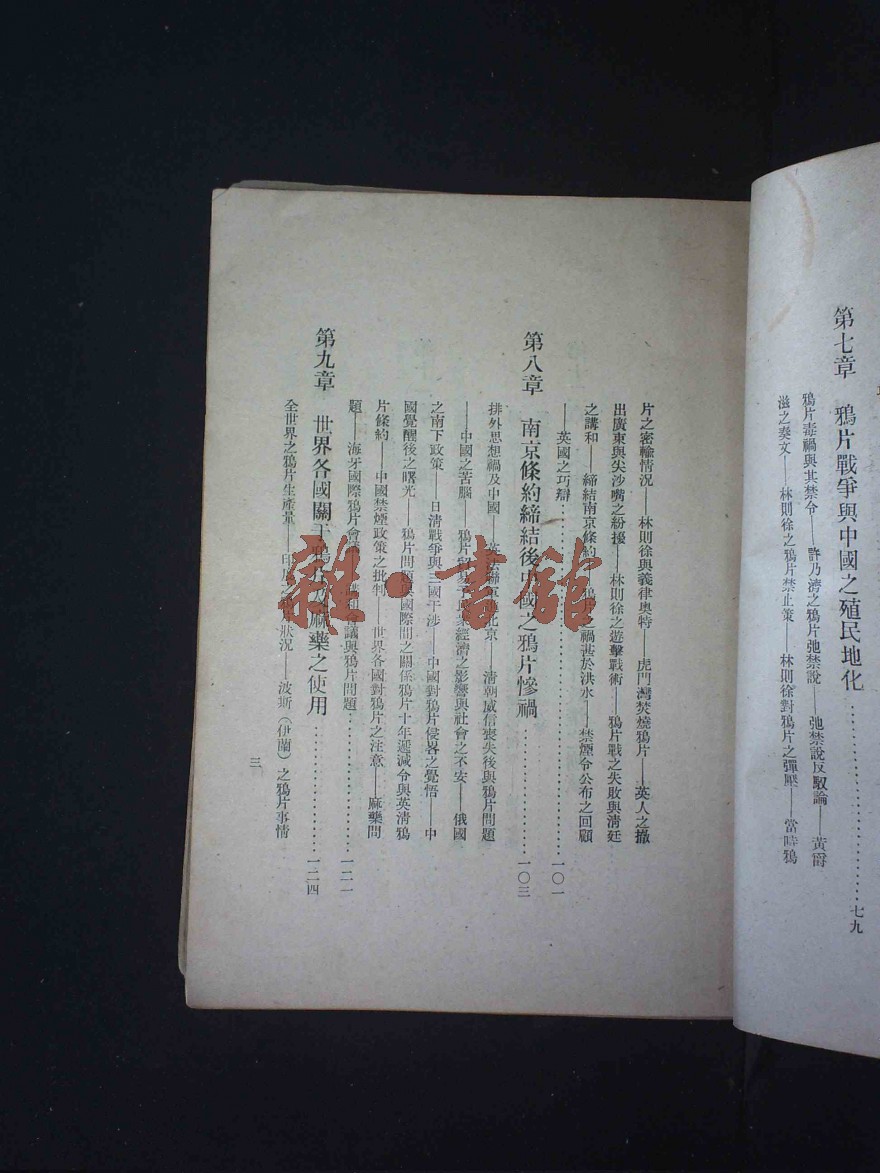 第七章　鴉片戰爭與中國之殖民地化……………七九
鴉片毒禍與其禁令——許乃濟之鴉片弛禁說——弛禁說反馭論——黃爵
滋之奏文——林則徐之鴉片禁止策——林則徐對鴉片之彈壓——當時鴉
片之密輸情況——林則徐與義律奧特——虎門灣焚燒鴉片——英人之撤
出廣東與尖沙嘴之紛擾——林則徐之遊擊戰術——鴉片戰之失敗與淸廷
之講和——締結南京條約——之禍甚於洪水——禁煙令公布之回顧
——英國之巧辯……………一〇一
第八章　南京條約締結後中國之鴉片慘禍……………一〇三
排外思想禍及中國——英法聯軍北京——淸朝威信喪失後與鴉片問題
——中國之苦腦——鴉片經濟之影響與社會之不安——俄國
之南下政策——日淸戰爭與三國干涉——中國對鴉片侵畧之覺悟——中
國覺醒後之曙光——鴉片問題與國際間之關係鴉片十年遞減令與英淸鴉
片條約——中國禁煙政策之批判——世界各國對鴉片之注意——麻藥問
題——海牙國際鴉片會議與鴉片問題……………一二一
第九章　世界各國關于鴉片及麻藥之使用……………一二四
全世界之鴉片生產量——印狀況——波斯（伊蘭）之鴉片事情
三
雜·書館